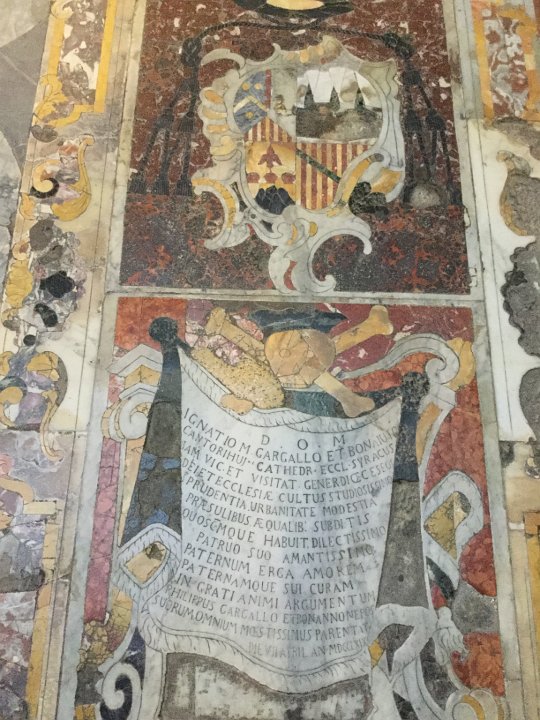 D O M
IGNATIO M GARGALLO ET BONA
CANTORI HUI· CATHEDR· ECCL· SYRACUS
IAM VIC· ET VISITAT· GENER·
DEI ET ECCLESIÆ CULTUS STUDIOSIS
PRUDENTIA URBANITATE MODESTIA
PRÆSULIBUS ÆQUALIB· SUBDITIS
QUOSCMQUE HABUIT DILECTISSIMO
PATRUO SUO AMANTISSIMO
PATERNUM ERGA AMOREM
PATERNAMQUE SUI CURAM
IN GRATI ANIMI ARGUMENTUM
PHILIPPUS GARGALLO ET BONANNO NEP
SUORUM OMNIUM MŒSTISSIMUS PARENTAT
DIE APRIL AN MDCC